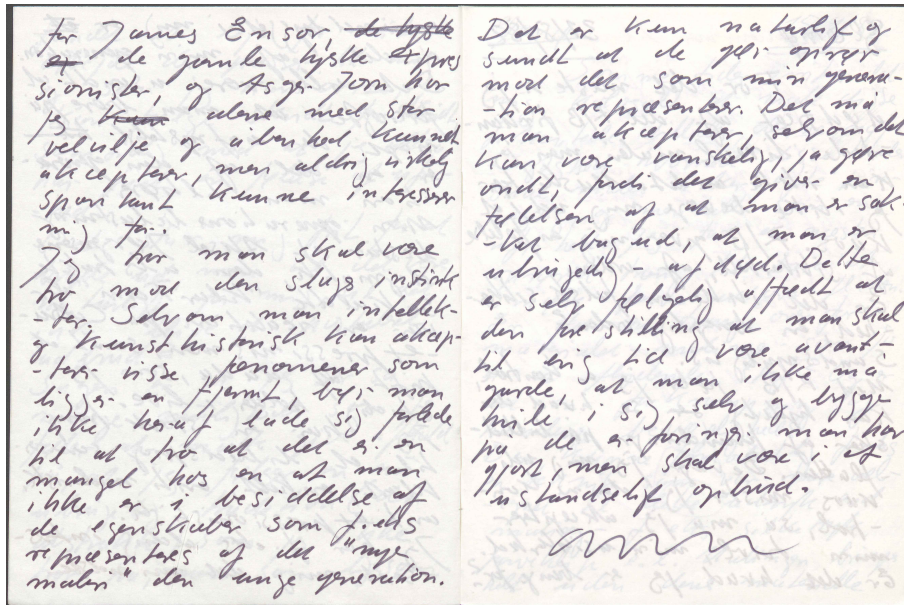 for James Ensor, de tyske
de gamle tyske Expres
sionister, og Asger Jorn har
jeg kun alene med stor
velvilje og åbenhed kunnet
akcepter, men aldrig virkelig
spontant kunne interessere
mig for.
Jeg tror man skal være
tro mod den slags instink-
-ter. Selvom man intellek-
og kunsthistorisk kan akcep-
-tere visse fænomener som
ligger en fjernt, bør man
ikke heraf lade sig forlede
til at tro at det er en
mangel hos en at man
ikke er i besiddelse af
de egenskaber som f.eks
repræsenteres af det "nye
maleri" den unge generation.
Det er kun naturligt og
sundt at de gør oprør
mod det som min genera-
-tion repræsenterer. Det må
man akceptere, selvom det
kan være vanskelig, ja gøre
ondt, fordi det giver en
følelsen af at man er sak-
-tet bagud, at man er
ubrugelig - afdød. Dette
er selvfølgelig affødt af
den forestilling at man skal
til enig tid være avant-
garde, at man ikke må
hvile i sig selv og bygge
på de erfaringer man har
gjort, men skal være i et
ustandseligt opbrud.